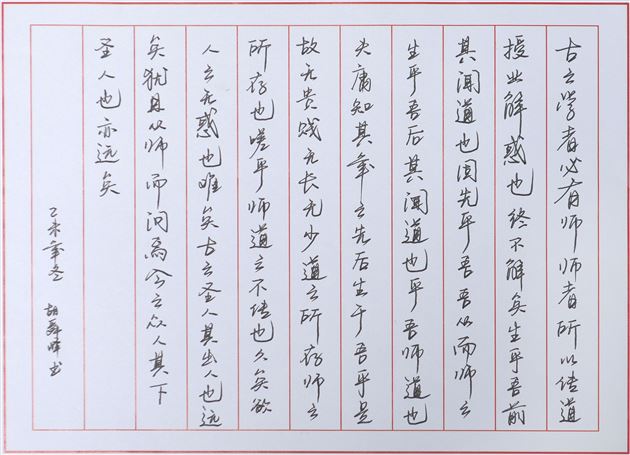 古之学者必有师师者所以传道
授业解惑也终不解矣生乎吾前
其闻道也固先乎吾吾从而师之
生乎吾后其闻道也乎吾师道也
夫庸知其年之先后生于吾乎是
故无贵贱无长无少道之所存师之
所存也嗟乎师道之不传也久矣欲
人之无惑也难矣古之圣人其出人也远
矣犹且从师而问焉今之众人其下
圣人也亦远矣
乙未年冬